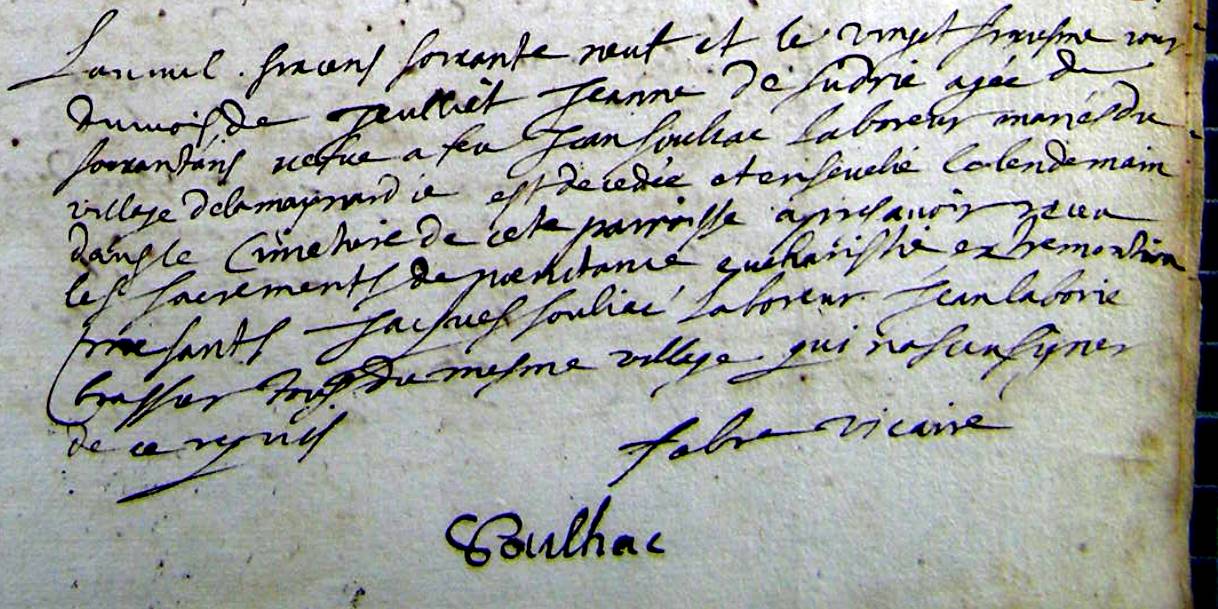 Lan mil sixcens soixante neuf et le vingt sixiesme jour
du mois de Jeulliet Jeanne de Sudrie agée de
soixantans vefve a feu Jean Soulhac laboreur mariés du
village de lamaynardie est decedée et ensevelie le lendemain
dans le Cimetiere de cete parroisse apres avoir receu
les sacrements de poenitance eucharistie extremontion
presants Jacques Souliac laboreur Jean laborie
brassier tous du mesme village qui no sceu signer
de ce requis
fabre vicaire
Soulhac